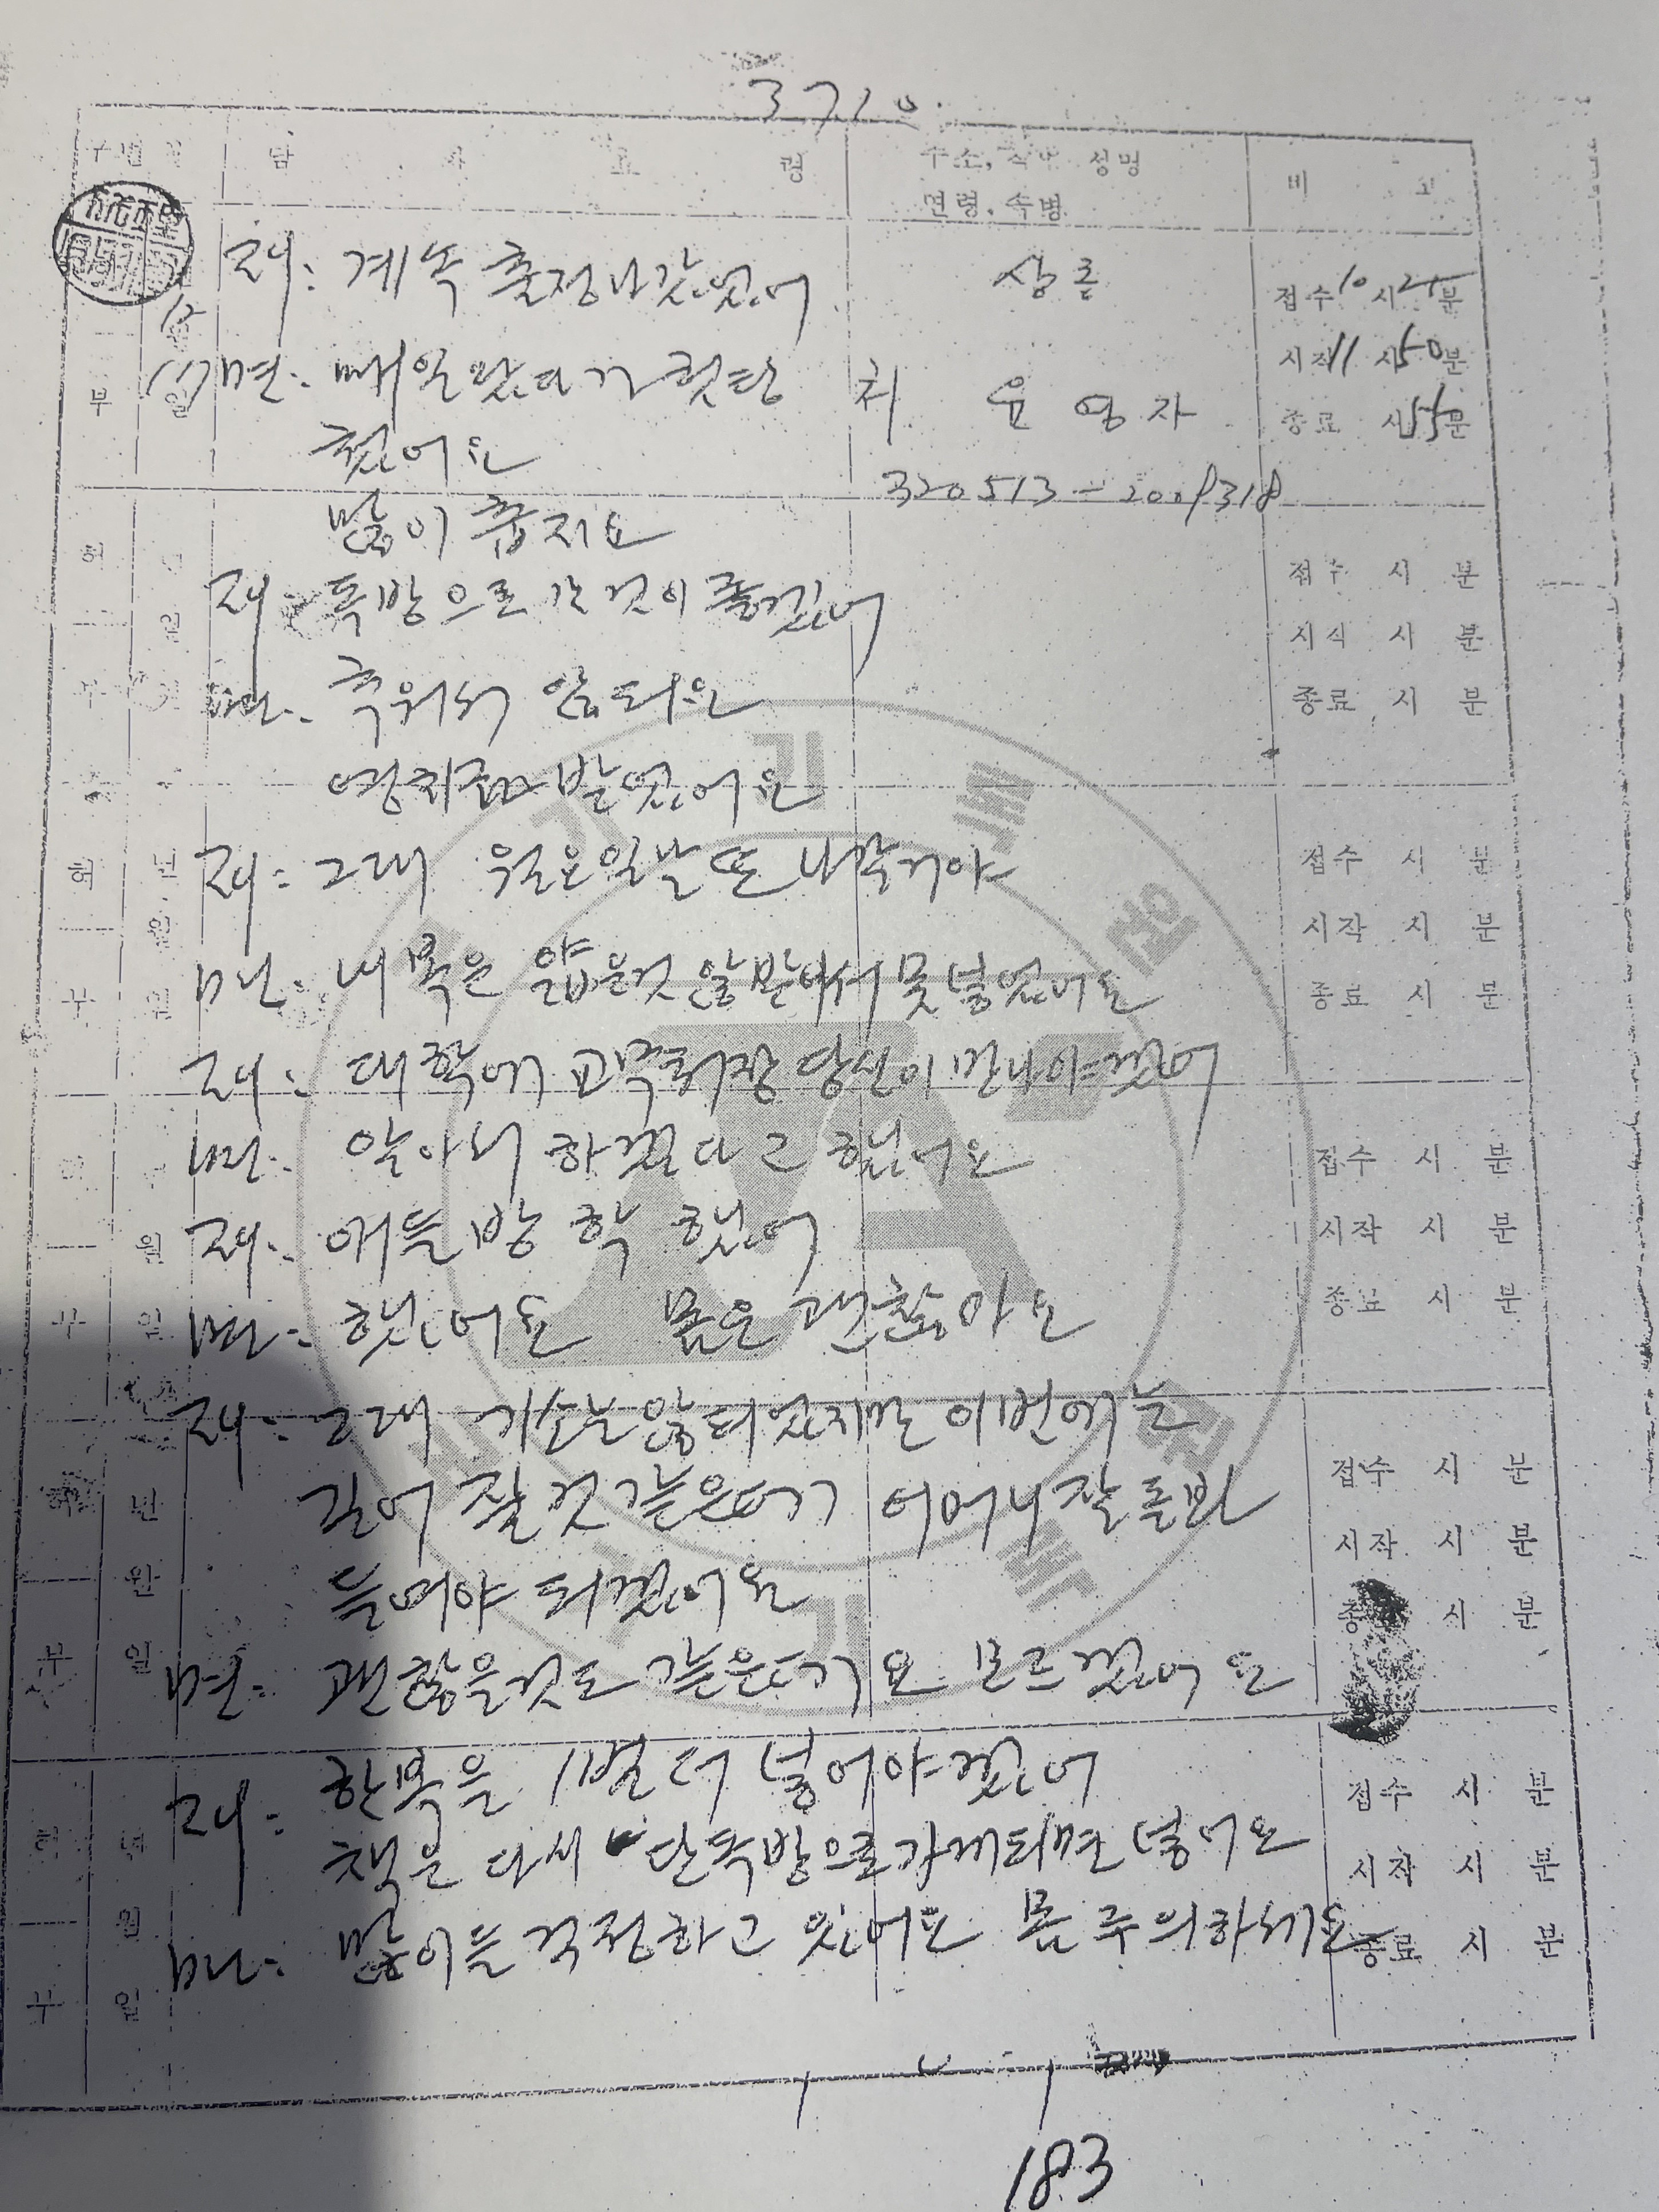 3710
담 사 요 령
주소, 직업 성명
연령, 축병
비 고
재: 계속 출정나갔었어
상 존
접수 10시 25분
민: 매일 왔다가 헛탕
처 윤 영 자
시작 11시 50분
쳤어요
종료 시 55분
320513-2009318
많이 춥지요
재: 독방으로 간것이 좋겠어
접수 시 분
민: 추워서 않되요
시작 시 분
종료 시 분
영치금 받았어요
재: 그래 월요일날 또 나갈거야
접수 시 분
민: 내복은 얇은것 않받아서 못넣었어요
시작 시 분
종료 시 분
재: 대학에 교무처장 당신이 만나야겠어
민: 알아서 하겠다고 했어요
접수 시 분
재: 애들 방학 했어
시작 시 분
민: 했어요 몸은 괜찮아요
종료 시 분
재: 그래 기소는 않되었지만 이번에는
길어 질것 같은데기 어머니 잘 돌봐
접수 시 분
드려야 되겠어요
시작 시 분
종료 시 분
민: 괜찮을것도 같은데기요 모르겠어요
재: 한복을 1벌 더 넣어야겠어
접수 시 분
책은 다시 단독방으로 가게되면 넣어요
시작 시 분
민: 많이들 걱정하고 있어요 몸 주의하세요
종료 시 분
183